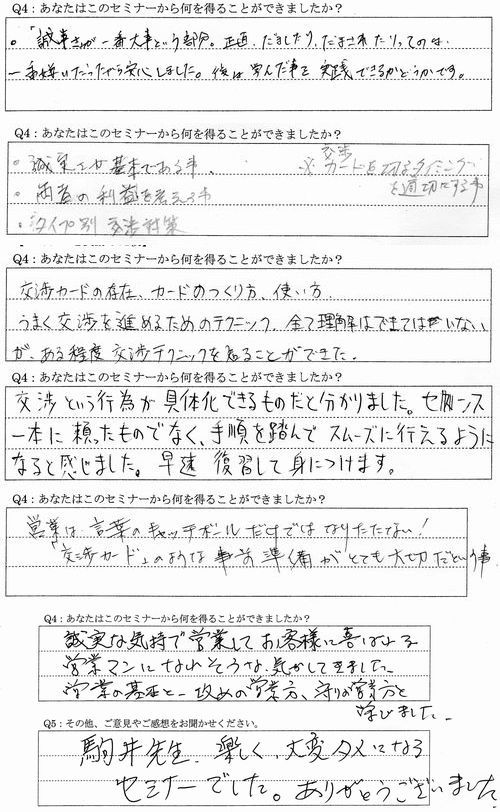 Q4：あなたはこのセミナーから何を得ることができましたか？
。「誠実さが一番大事という部分。正直、だましたり、だまされたりってのは
一番嫌いだったから安心しました。後は学んだ事を実践できるかどうかです。
Q4：あなたはこのセミナーから何を得ることができましたか？
・誠実さが基本である事、
・両者の利益を考える事
・タイプ別 交渉対策
※交渉カードを切るタイミング
を適切にする事
Q4：あなたはこのセミナーから何を得ることができましたか？
交渉カードの存在、カードのつくり方、使い方、
うまく交渉を進めるためのテクニック、全て理解はできてはいない
が、ある程度交渉テクニックを ることができた。
Q4：あなたはこのセミナーから何を得ることができましたか？
交渉という行為が具体化できるものだと分かりました。センス
一本に頼ったものでなく、手順を踏んでスムーズに行えるように
なると感じました。早速復習して身につけます。
Q4：あなたはこのセミナーから何を得ることができましたか？
営業は言葉のキャッチボールだけではなりたたない！
「交渉カード」のような事前準備がとても大切だという事
Q4：あなたはこのセミナーから何を得ることができましたか？
誠実な気持で営業してお客様に喜ばれる
営業マンになれそうな気がしてきました
営業の基本と 攻めの営業方、守りの営業方と
学びました。
Q5：その他、ご意見やご感想をお聞かせください。
駒井先生、楽しく、大変タメになる
セミナーでした。ありがとうございました